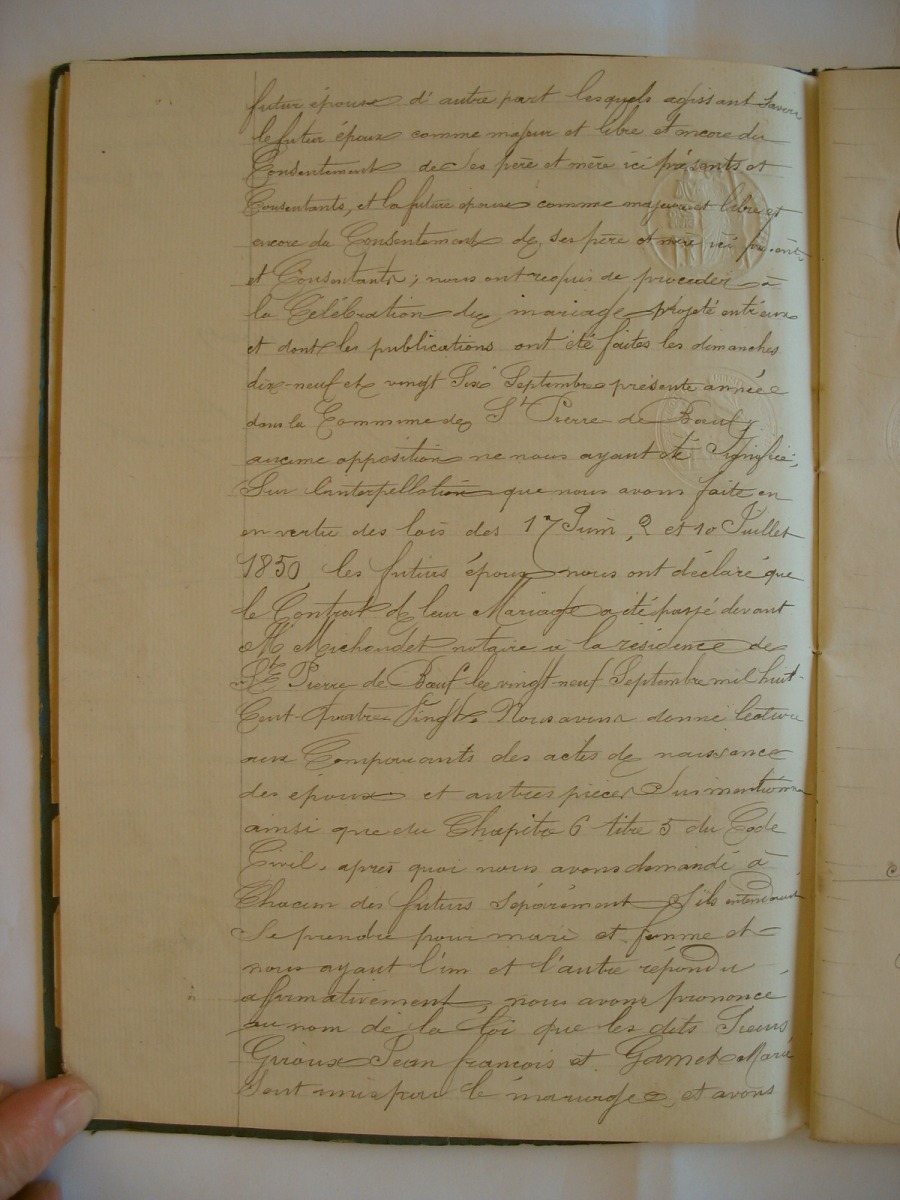 future épouse d'autre part lesquels agissant savoir
le futur époux comme majeur et libre et encore du
Consentement de ses père et mère ici présents et
Consentants, et la future épouse comme majeure et libre et
encore du Consentement de ses père et mère ici présents
et Consentants ; nous ont requis de procéder à
la Célébration du mariage projeté entre eux
et dont les publications ont été faites les dimanches
dix-neuf et vingt Six Septembre présente année
dans la Commune de St Pierre de Bœuf,
aucune opposition ne nous ayant été Signifiée,
Sur l'interpellation que nous avons faite en
en vertu des lois des 17 Juin, 2 et 10 Juillet
1850, les futurs époux nous ont déclaré que
le Contrat de leur Mariage a été passé devant
Me Michoudet notaire à la résidence de
St Pierre de Bœuf le vingt-neuf Septembre mil huit-
Cent-Quatre-Vingt. Nous avons donné lecture
aux Comparants des actes de naissance
des époux et autres pièces Sus mentionnées
ainsi que du Chapitre 6 titre 5 du Code
Civil. après quoi nous avons demandé à
Chacun des futurs Séparément S'ils entendaient
Se prendre pour mari et femme et
nous ayant l'un et l'autre répondu
affirmativement, nous avons prononcé
au nom de la loi que les dits Sieurs
Giroux Jean françois et Gamet Marie
Sont unis par le mariage, et avons